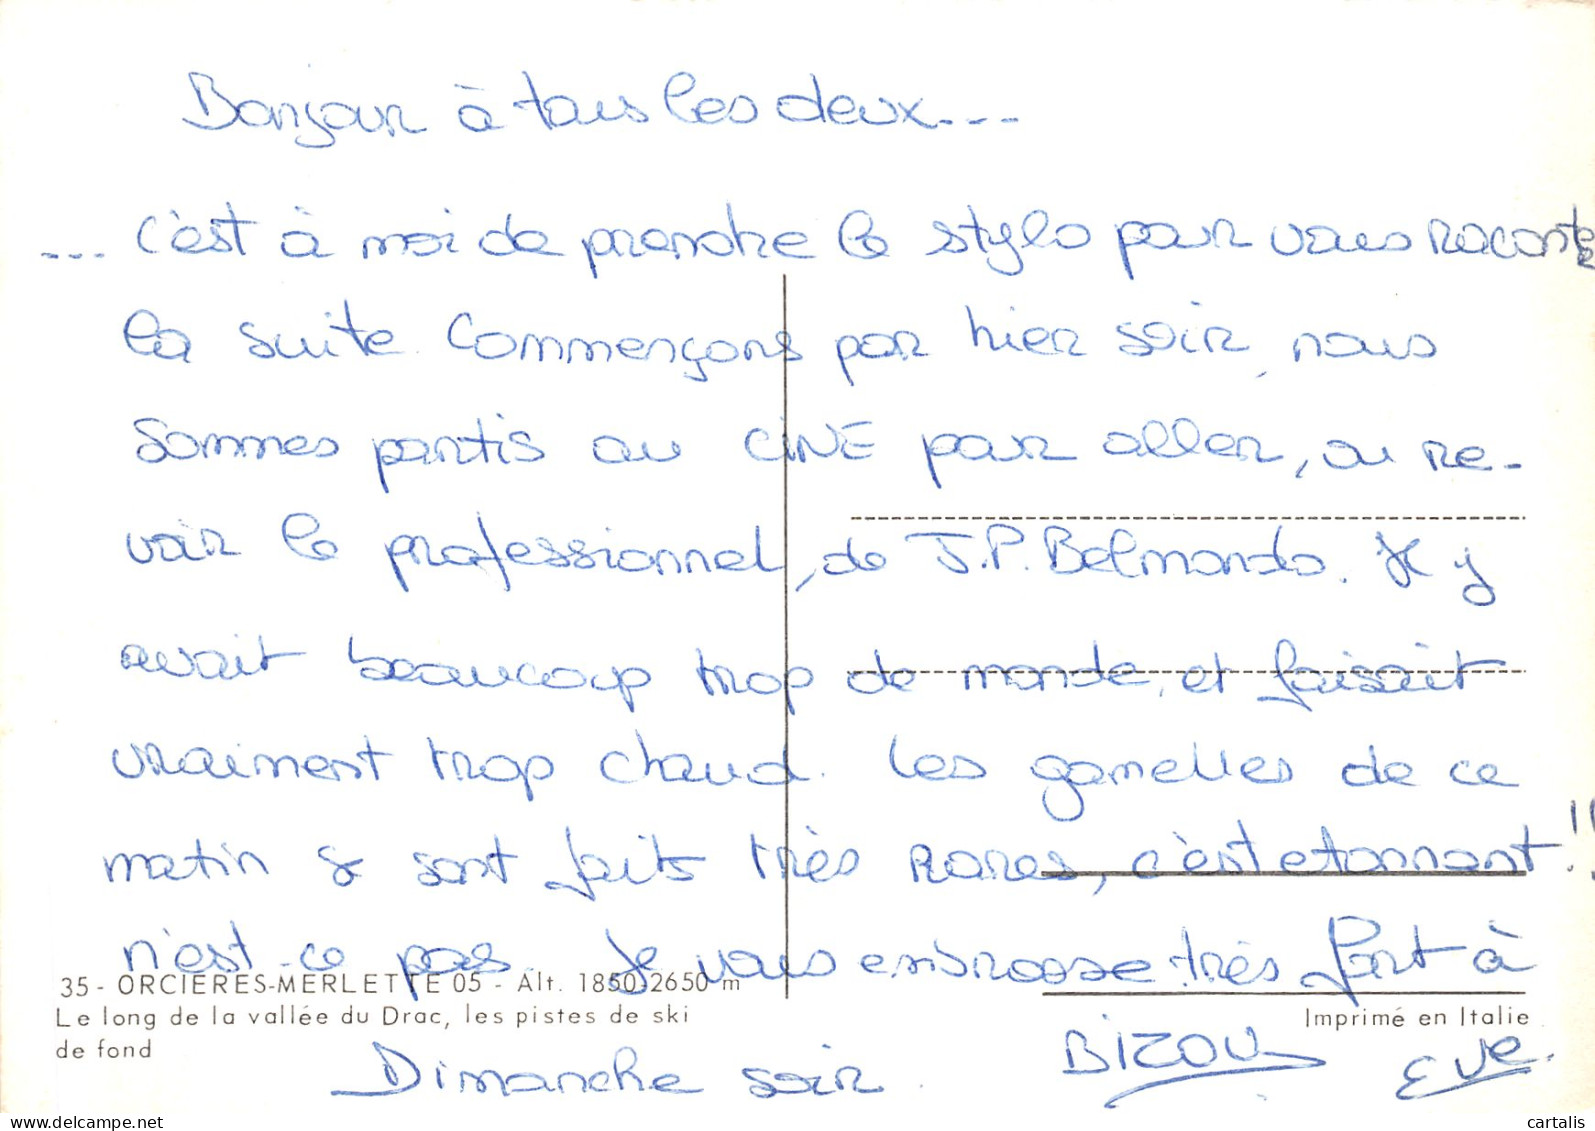 Bonjour à tous les deux...
... c'est à moi de prendre le stylo pour vous raconter
la suite. Commençons par hier soir, nous
sommes partis au CINE pour aller, ou re-
voir le professionnel, de J.P. Belmondo. Il y
avait beaucoup trop de monde, et faisait
vraiment trop chaud. Les gamelles de ce
matin se sont faits très rares, c'est etonnant!!
n'est-ce pas. Je vous embrasse très fort à
35 - ORCIÈRES-MERLETTE 05 - Alt. 1850-2650 m
Le long de la vallée du Drac, les pistes de ski
de fond
Imprimé en Italie
Dimanche soir.
BIZOU
Eve.
cartalis
delcampe.net